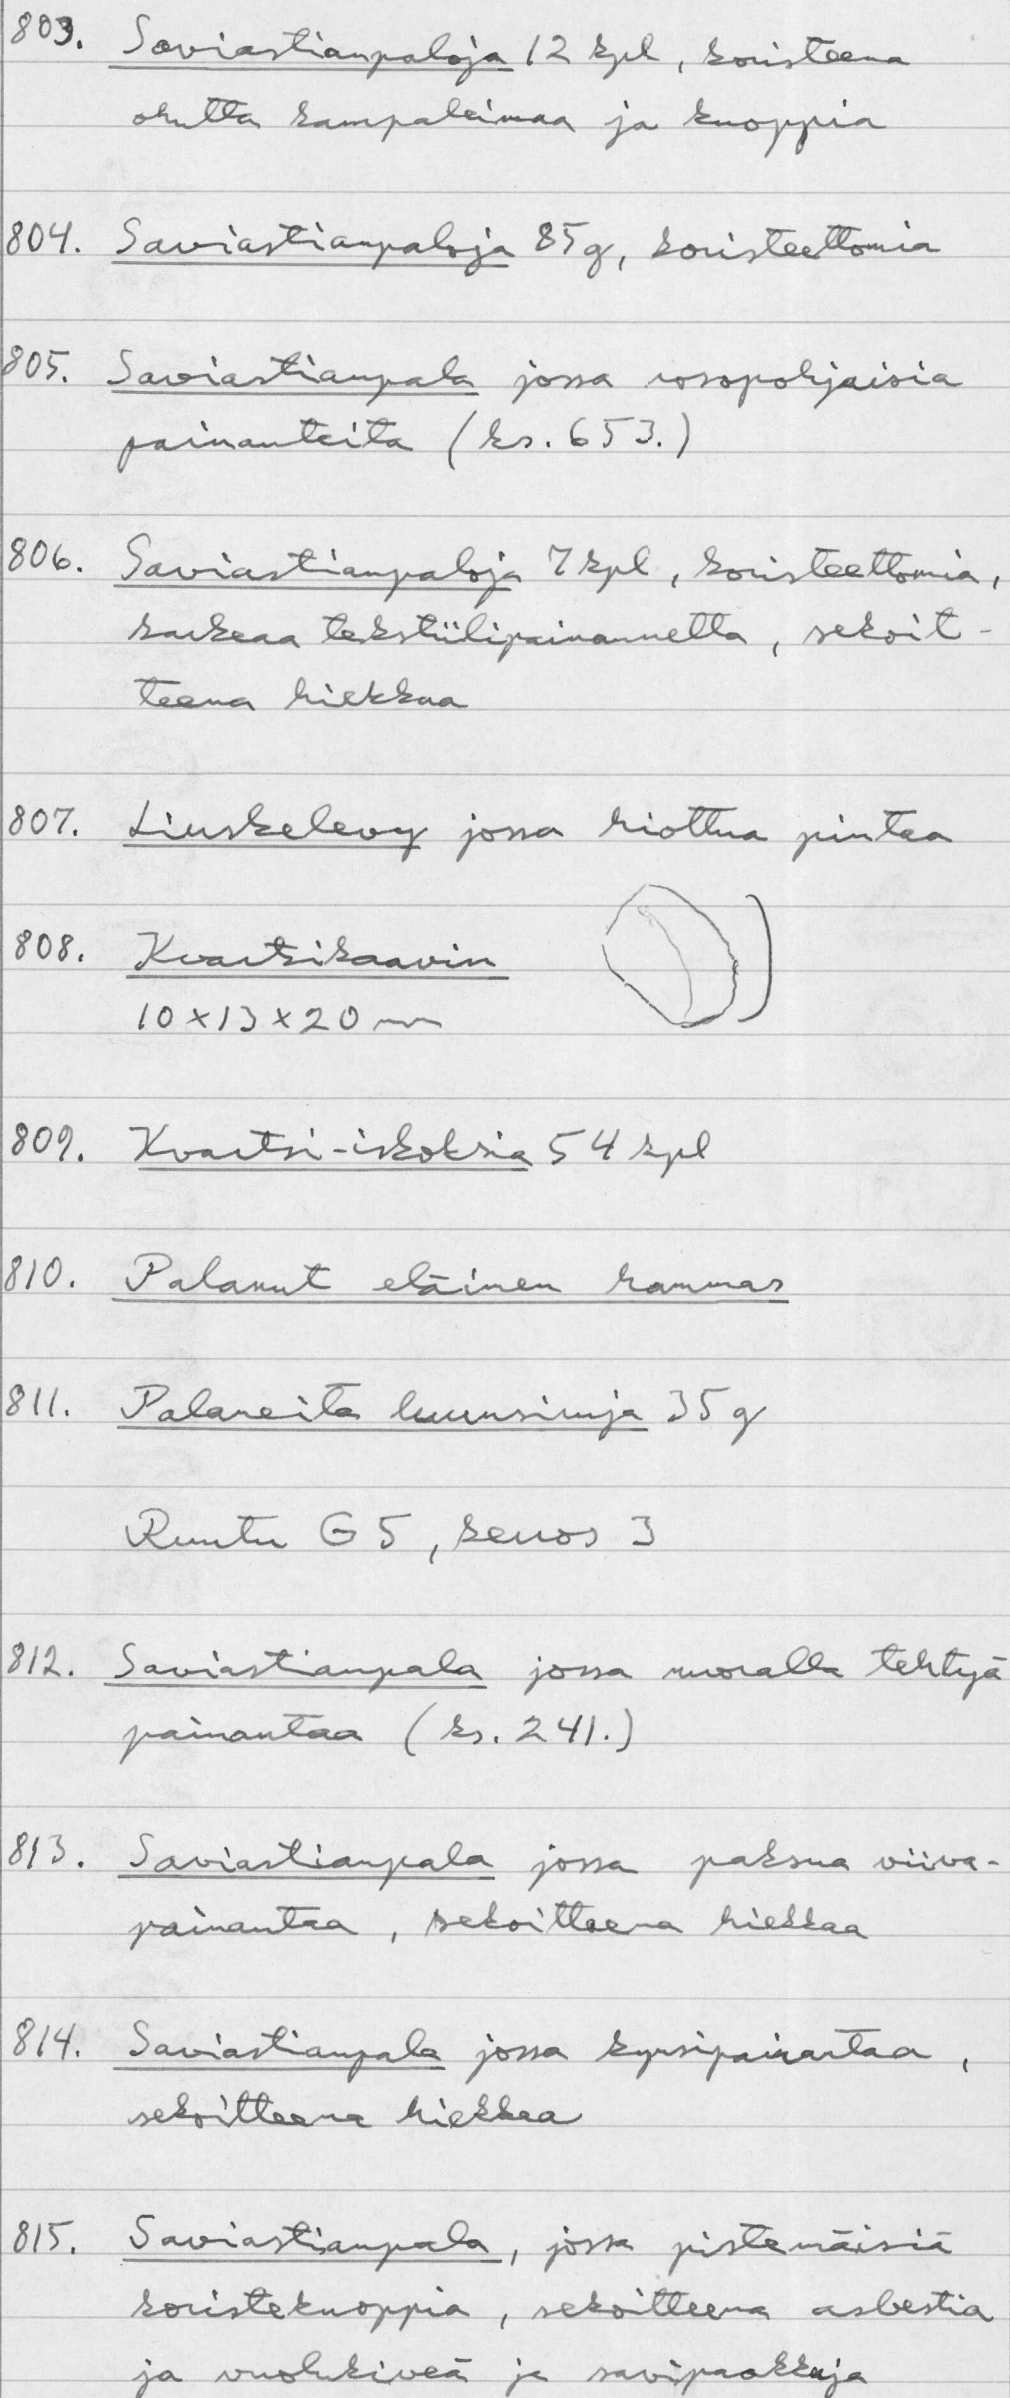 803. Saviastianpaloja 12 kpl, koristeena
ohutta kampaleimaa ja kuoppia
804. Saviastianpaloja 85g, koristeettomia
805. Saviastianpala jossa rosopohjaisia
painanteita (ks. 653.)
806. Saviastianpaloja 7 kpl, koristeettomia,
karkeaa tekstiilipainannetta, sekoit-
teena hiekkaa
807. Liuskelevy jossa hiottua pintaa
808. Kvartsikaavin
10x13x20 mm
809. Kvartsi-iskoksia 54 kpl
810. Palanut eläimen hammas
811. Palaneita luunsiruja 35 g
Ruutu G5, kerros 3
812. Saviastianpala jossa nuoralla tehtyä
painantaa (ks. 241.)
813. Saviastianpala jossa paksua viiva-
painantaa, sekoitteena hiekkaa
814. Saviastianpala jossa kynsipainantaa,
sekoitteena hiekkaa
815. Saviastianpala, jossa pistemäisiä
koristekuoppia, sekoitteena asbestia
ja vuolukiveä ja savipaakkuja